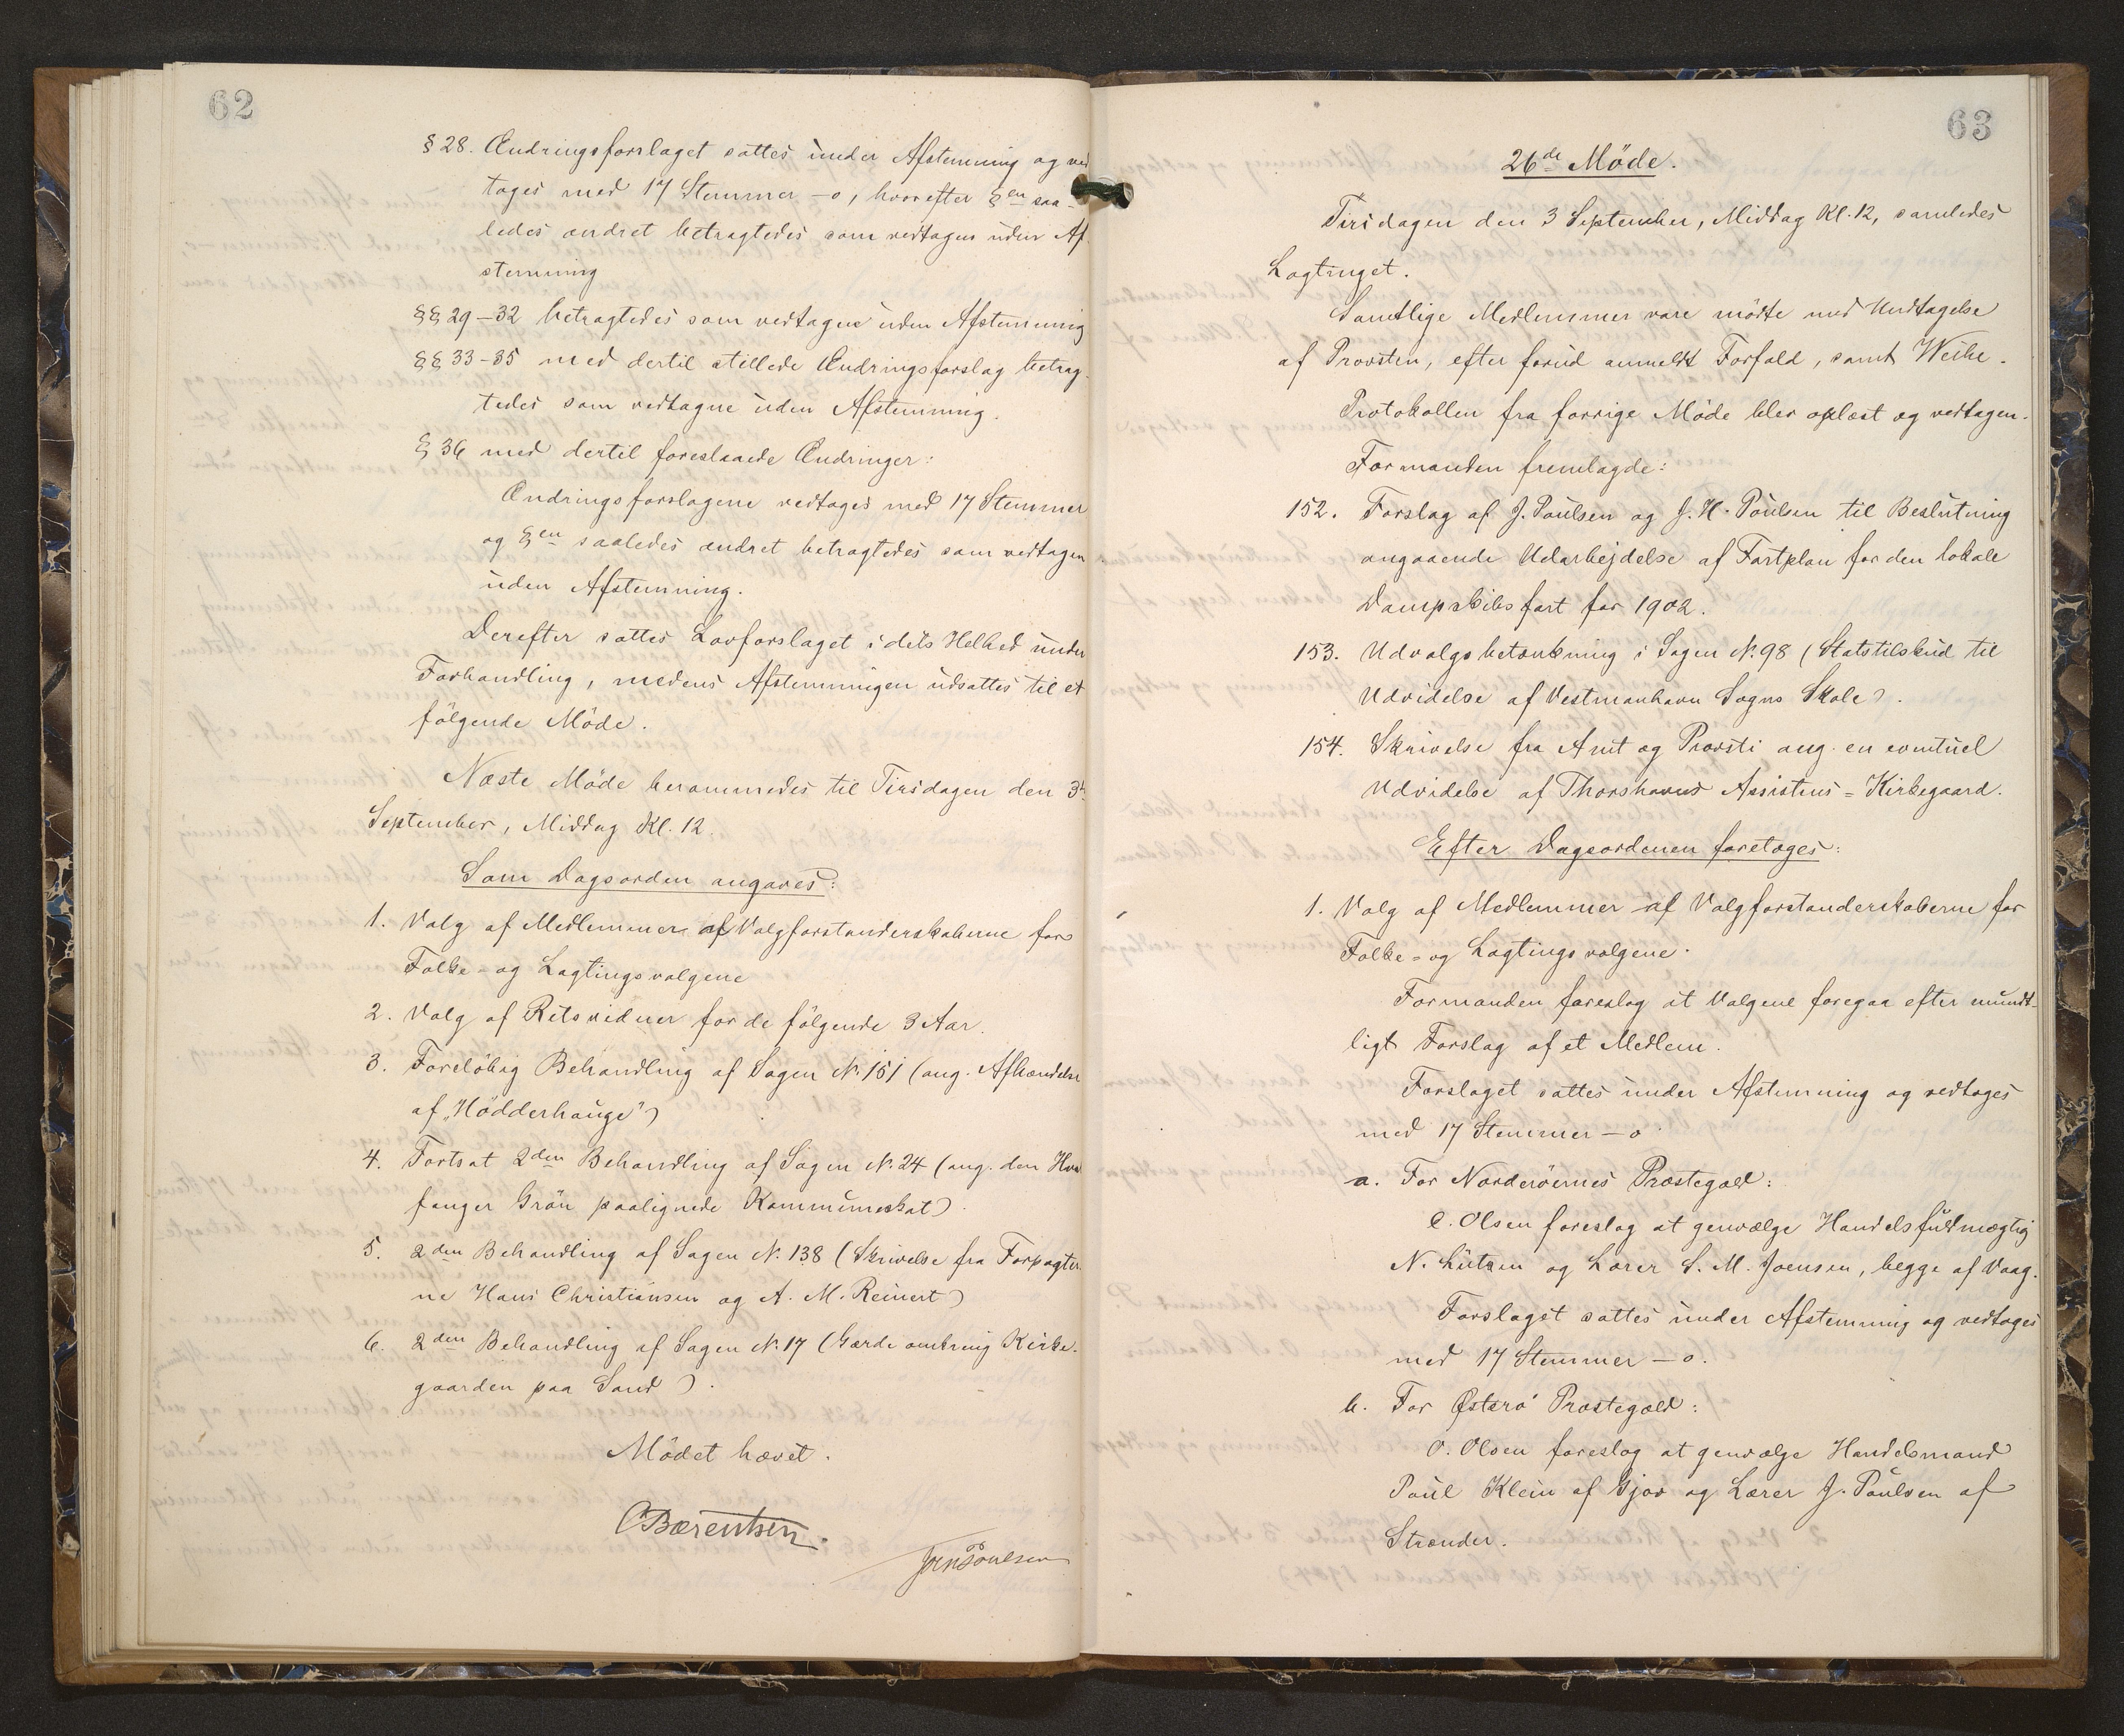 62
§ 28. Ændringsforslaget sattes under Afstemning og ved
toges med 17 Stemmer – 0, hvorefter §en saa-
ledes ændret betragtedes som vedtagen uden Af
stemning
§§ 29–32 betragtedes som vedtagne uden Afstemning
§§ 33–35 med dertil stillede Ændringsforslag betrag-
tedes som vedtagne uden Afstemning.
§ 36 med dertil foreslaaede Ændringer:
Ændringsforslagene vedtoges med 17 Stemmer
og §en saaledes ændret betragtedes som vedtagen
uden Afstemning.
Derefter sattes Lovforslaget i dets Helhed under
Forhandling, medens Afstemningen udsattes til et
følgende Møde.
Næste Møde berammedes til Tirsdagen den 3d
September, Middag Kl. 12.
Som Dagsorden angaves:
1. Valg af Medlemmer af Valgforstanderskaberne for
Folke- og Lagtingsvalgene
2. Valg af Retsvidner for de følgende 3 Aar.
3. Foreløbig Behandling af Sagen N. 151 (ang. Afhændelse
af „Hödderhauge")
4. Fortsat 2den Behandling af Sagen N. 24 (ang. den Hval
fanger Grøn paalignede Kommuneskat).
5. 2den Behandling af Sagen N. 138 (Skrivelse fra Forpagter-
ne Hans Christiansen og A. M. Reinert)
6. 2den Behandling af Sagen N. 17 (Gærde omkring Kirke-
gaarden paa Sand).
Mødet hævet.
CBærentsen.
JensPoulsen
63
26de Møde.
Tirsdagen den 3 September, Middag Kl. 12, samledes
Lagtinget.
Samtlige Medlemmer vare mødte med Undtagelse
af Provsten, efter forud anmeldt Forfald, samt Weihe.
Protokollen fra forrige Møde blev oplæst og vedtagen.
Formanden fremlagde:
152. Forslag af J. Poulsen og J. H. Poulsen til Beslutning
angaaende Udarbejdelse af Fartplan for den lokale
Dampskibsfart for 1902.
153. Udvalgsbetænkning i Sagen N. 98 (Statstilskud til
Udvidelse af Vestmanhavn Sogns Skole).
154. Skrivelse fra Amt og Provsti ang. en eventuel
Udvidelse af Thorshavns Assistens-Kirkegaard.
Efter Dagsordenen foretoges:
1. Valg af Medlemmer af Valgforstanderskaberne for
Folke- og Lagtingsvalgene.
Formanden foreslog at Valgene foregaa efter mundt-
ligt Forslag af et Medlem.
Forslaget sattes under Afstemning og vedtoges
med 17 Stemmer – 0
a. For Norderøernes Præstegæld:
C. Olsen foreslog at genvælge Handelsfuldmægtig
N. Lützen og Lærer S. M. Joensen, begge af Vaag.
Forslaget sattes under Afstemning og vedtoges
med 17 Stemmer – 0.
b. For Østerø Præstegæld:
O. Olsen foreslog at genvælge Handelsmand
Poul Klein af Gjov og Lærer J. Poulsen af
Strænder.